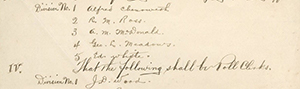 Division No. 1 Alfred Chenowith
2 R. M. Ross.
3 A. M. McDonald
4 Geo. E. Meadows.
5 W. White.
IV. That the following shall be Poll Clerks.
Division No. 1 J. D. Wood.